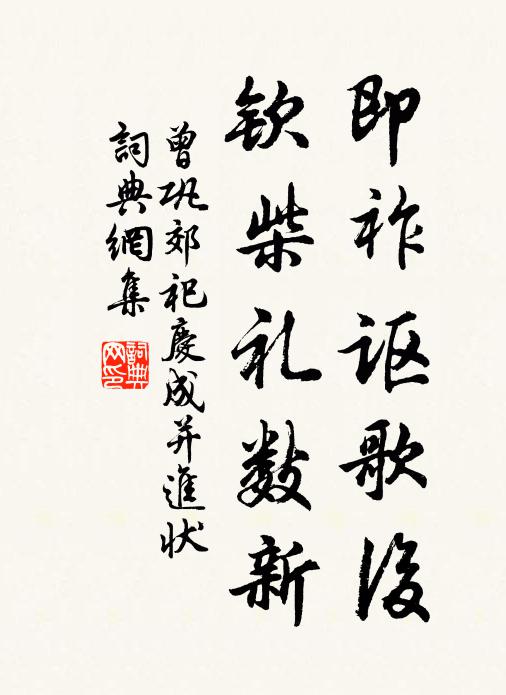 即祚讴歌後
钦柴礼数新
曾巩郊祀慶成并進状
詞典網集
詞典网印